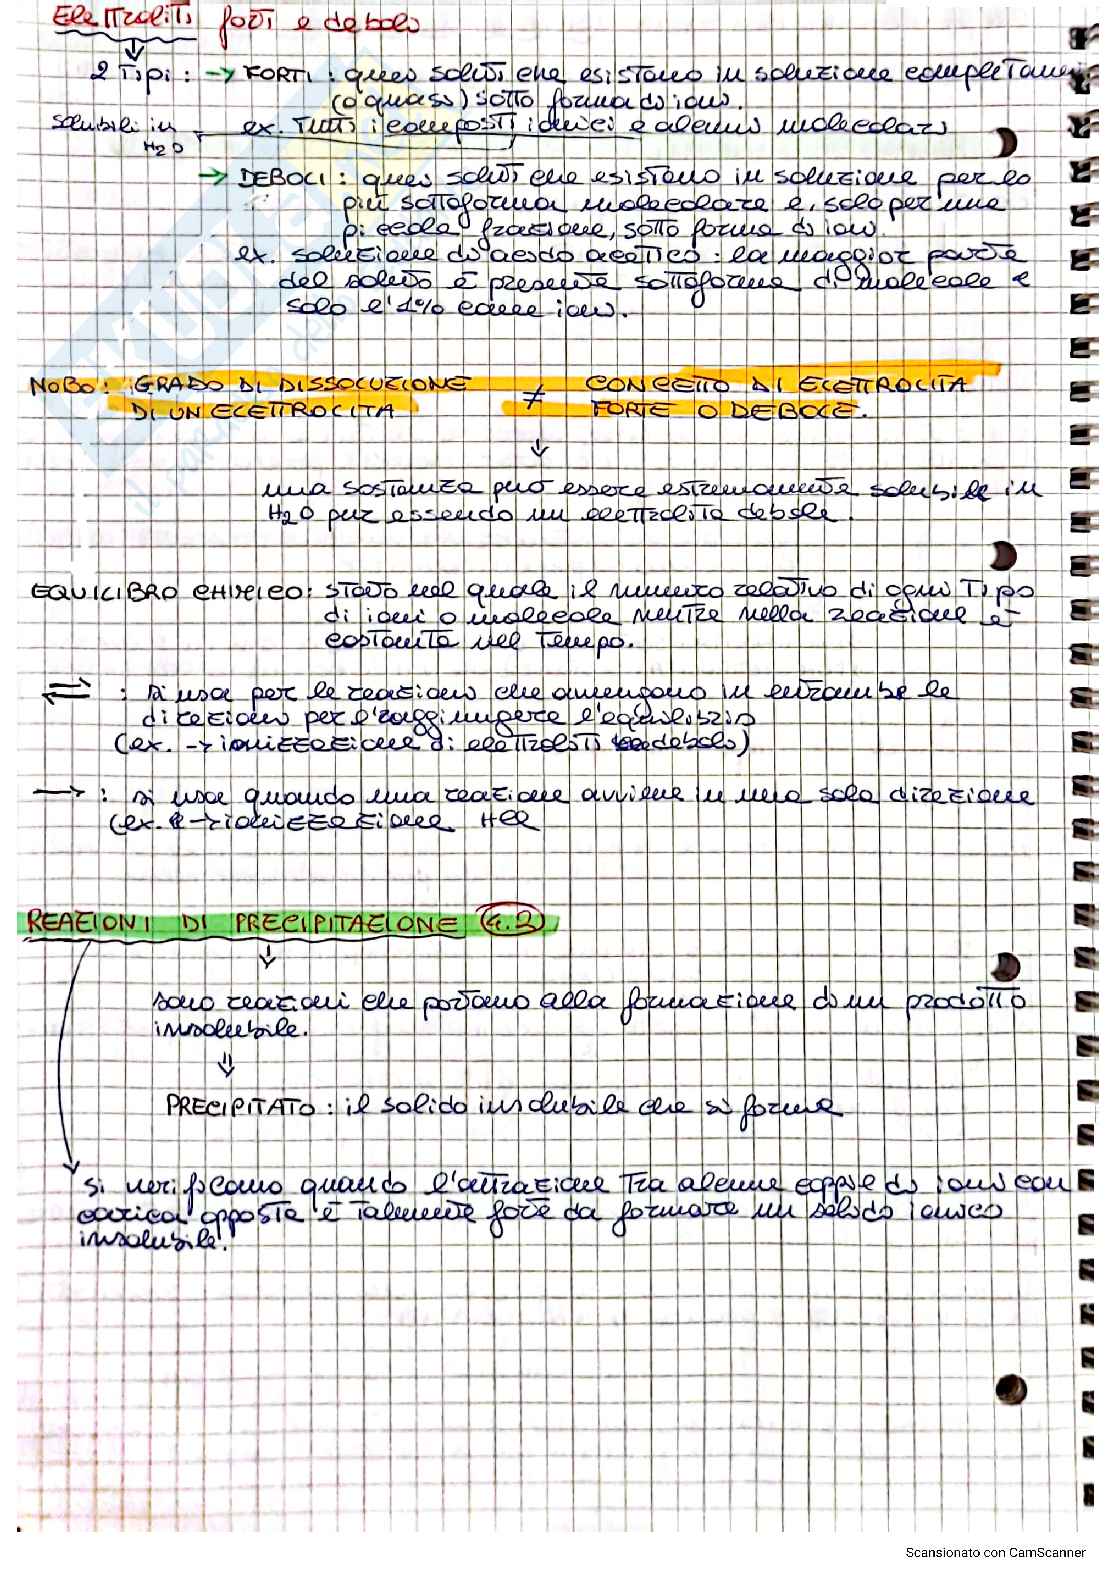 Elettroliti forti e deboli
2 Tipi: → FORTI: quei soluti che esistono in soluzione completamen
(o quasi) sotto forma di ioni.
solubili in H2O
ex. Tutti i composti ionici e alcuni molecolari
→ DEBOLI: quei soluti che esistono in soluzione per lo
più sottoforma molecolare e, solo per una
piccola frazione, sotto forma di ioni.
ex. soluzione di acido acetico: la maggior parte
del soluto è presente sottoforma di molecole e
solo l'1% come ioni.
NOBO: GRADO DI DISSOLUZIONE ≠ CONCETTO DI ELETTROLITA
DI UN ELETTROLITA FORTE O DEBOLE.
una sostanza può essere estremamente solubile in
H2O pur essendo un elettrolita debole.
EQUILIBRO CHIMICO: stato nel quale il numero relativo di ogni tipo
di ioni o molecole mentre nella reazione è
costante nel tempo.
⇌ : si usa per le reazioni che avvengono in entrambe le
direzioni per l'raggiungere l'equilibrio
(ex. → ionizzazione di elettroliti deboli)
→ : si usa quando una reazione avviene in una sola direzione
(ex. → ionizzazione HCl
REAZIONI DI PRECIPITAZIONE 4.2
sono reazioni che portano alla formazione di un prodotto
insolubile.
PRECIPITATO: il solido insolubile che si forma
si verificano quando l'attrazione tra alcune coppie di ioni con
carica opposta è talmente forte da formare un solido ionico
insolubile!
Scansionato con CamScanner